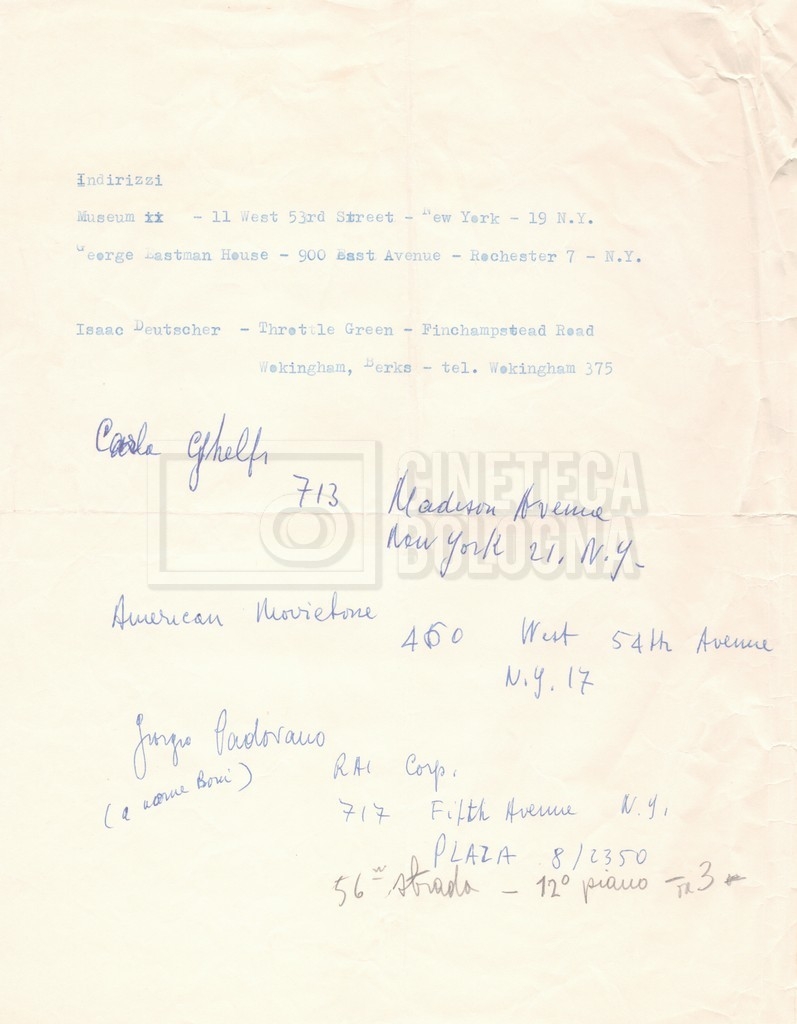 Indirizzi
Museum - 11 West 53rd Street - New York - 19 N.Y.
George Eastman House - 900 East Avenue - Rochester 7 - N.Y.
Isaac Deutscher - Throttle Green - Finchampstead Road
Wokingham, Berks - tel. Wokingham 375
Carla Ghelfi
713 Madison Avenue
New York 21. N.Y.
CINETECA
BOLOGNA
American Movietone
460 West 54th Avenue
N.Y. 17
Giorgio Padovano
(a nome Boni)
RAI Corp.
717 Fifth Avenue N.Y.
PLAZA 8/2350
56 strada - 12° piano - 3